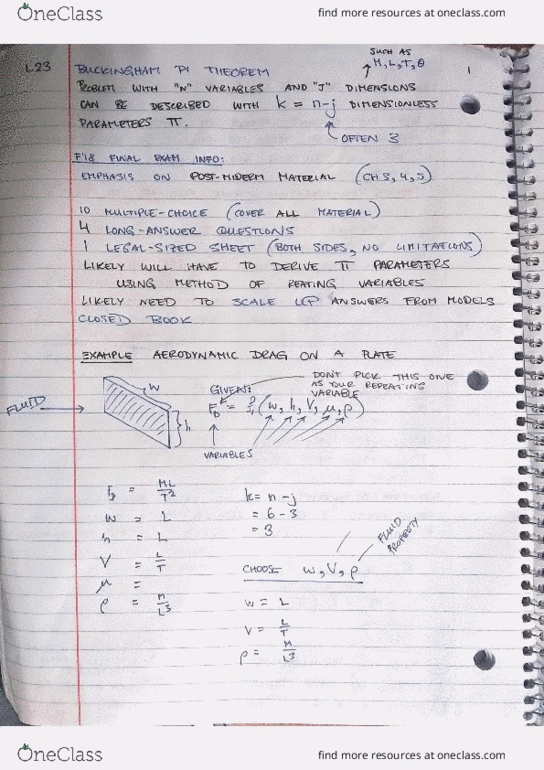 OneClass
find more resources at oneclass.com
SUCH AS
L23 BUCKINGHAM PI THEOREM M, L, T, θ 1
PROBLEM WITH "N" VARIABLES AND "J" DIMENSIONS
CAN BE DESCRIBED WITH k = n-j DIMENSIONLESS
PARAMETERS Π.
OFTEN 3
F'18 FINAL EXAM INFO:
EMPHASIS ON POST-MIDERM MATERIAL (CH 3, 4, 5)
10 MULTIPLE-CHOICE (COVER ALL MATERIAL)
4 LONG-ANSWER QUESTIONS
1 LEGAL-SIZED SHEET (BOTH SIDES, NO LIMITATIONS)
LIKELY WILL HAVE TO DERIVE Π PARAMETERS
USING METHOD OF REATING VARIABLES
LIKELY NEED TO SCALE UP ANSWERS FROM MODELS
CLOSED BOOK
EXAMPLE AERODYNAMIC DRAG ON A PLATE
DON'T PICK THIS ONE
AS YOUR REPEATING
VARIABLE
GIVEN:
W
FLUID
h
F_D = f(w, h, V, μ, ρ)
VARIABLES
F_D = ML/T²
w = L
h = L
V = L/T
μ =
ρ = M/L³
k = n-j
= 6-3
= 3
FLUID
PROPERTY
CHOOSE w, V, ρ
w = L
V = L/T
ρ = M/L³
OneClass
find more resources at oneclass.com